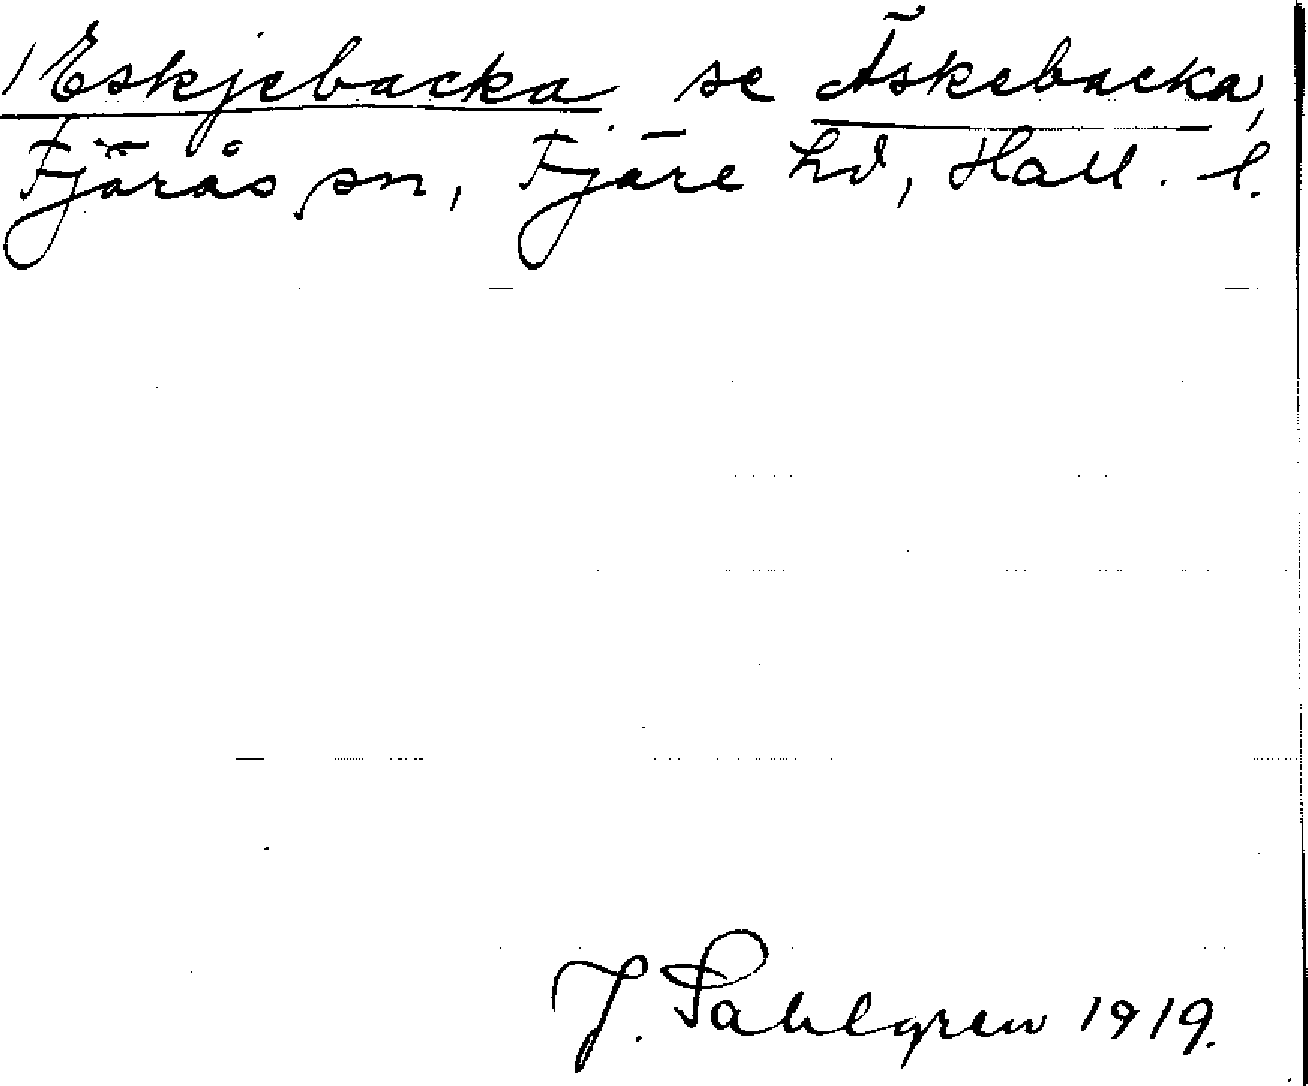 /Eskjebacka se Äskebacka,
Fjärås sn, Fjäre hd, Hall. l.
J. Sahlgren 1919.